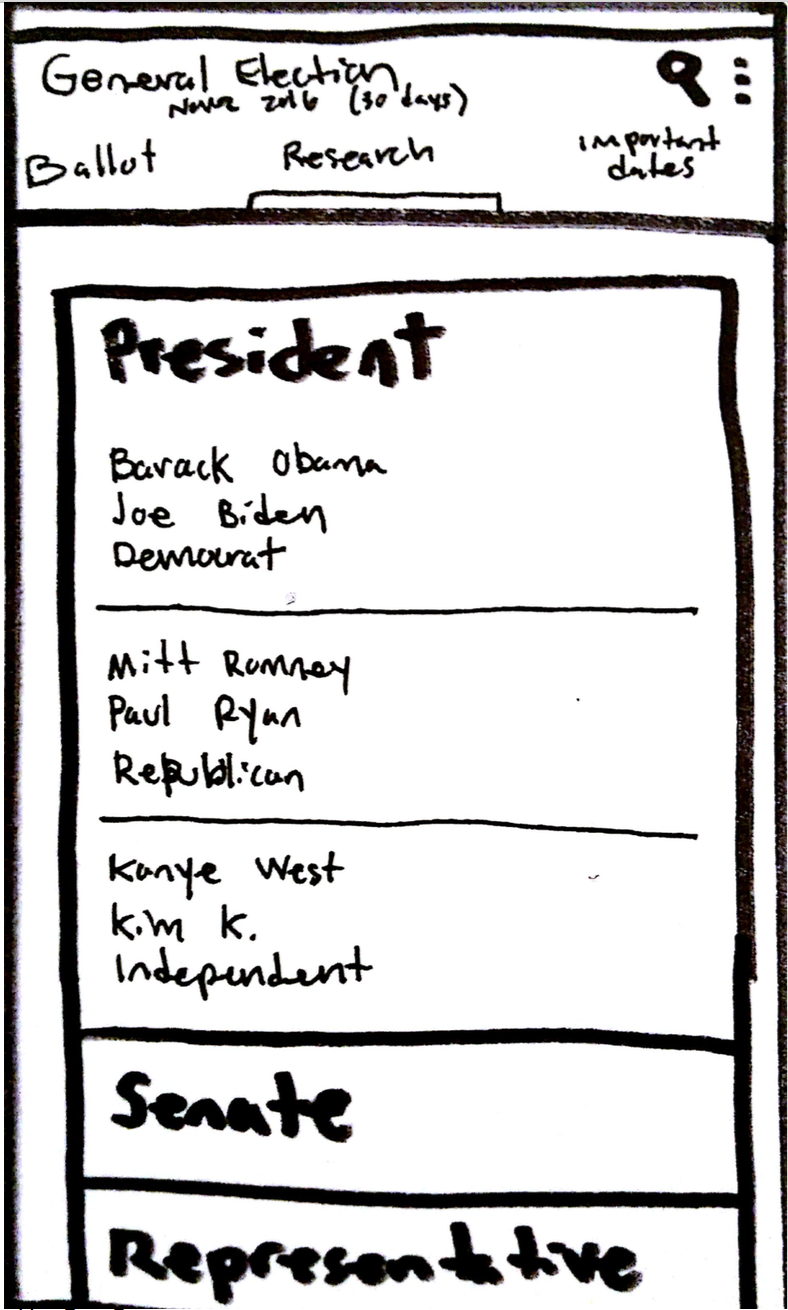 General Election
Nov 2 2016 (30 days)
Ballot
Research
important
dates
President
Barack Obama
Joe Biden
Democrat
Mitt Romney
Paul Ryan
Republican
Kanye West
Kim K.
Independent
Senate
Representative